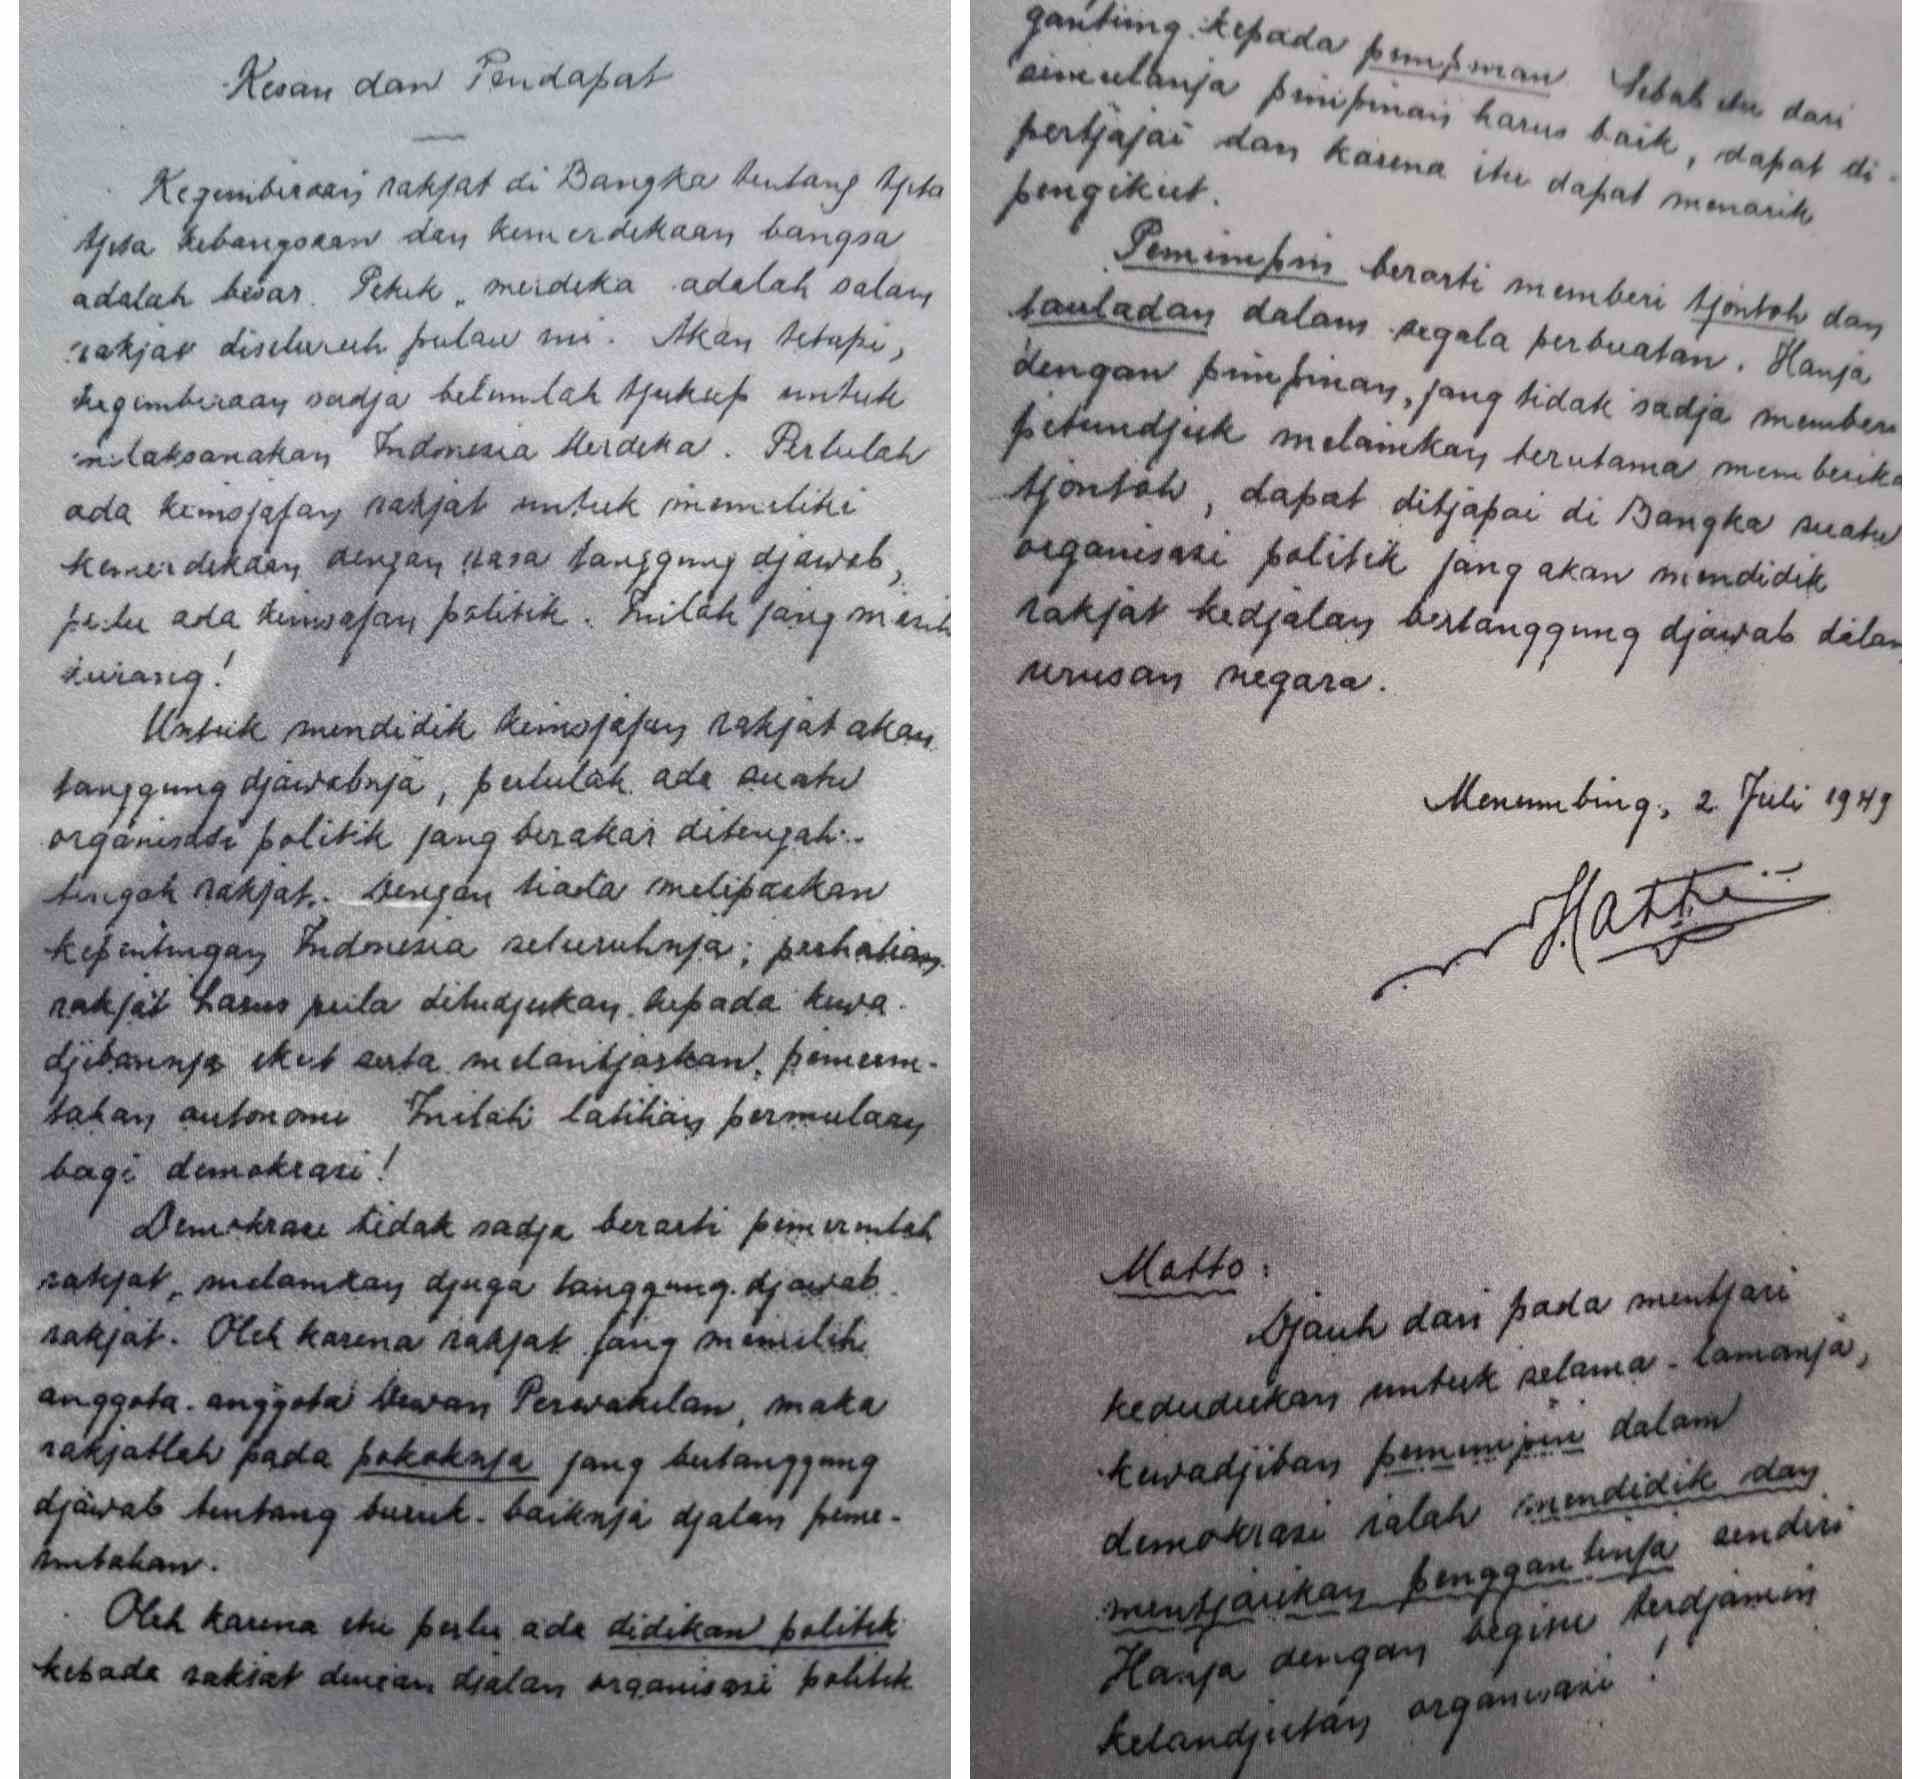 Kesan dan Pendapat
Kegembiraan rakjat di Bangka tentang tjita
tjita kebangsaan dan kemerdekaan bangsa
adalah besar. Pekik „merdeka adalah salam
rakjat diseluruh pulau ini. Akan tetapi,
kegembiraan sadja belumlah tjukup untuk
melaksanakan Indonesia Merdeka. Perlulah
ada keinsjafan rakjat untuk memiliki
kemerdekaan dengan rasa tanggung djawab,
perlu ada keinsafan politik. Inilah jang masih
kurang!
Untuk mendidik keinsjafan rakjat akan
tanggung djawabnja, perlulah ada suatu
organisasi politik jang berakar ditengah-
tengah rakjat. Dengan tiada melipakan
kepentingan Indonesia seluruhnja; perhatian
rakjat harus pula ditudjukan kepada kewa-
djibannja ikut serta melantjarkan pemerin-
tahan autonomi Inilah latihan permulaan
bagi demokrasi!
Demokrasi tidak sadja berarti pemerintah
rakjat, melainkan djuga tanggung djawab
rakjat. Oleh karena rakjat jang memilih
anggota-anggota Dewan Perwakilan, maka
rakjatlah pada pokoknja jang bertanggung
djawab tentang buruk-baiknja djalan peme-
rintahan.
Oleh karena itu perlu ada didikan politik
kepada rakjat dengan djalan organisasi politik
gantung kepada pimpinan Sebab itu dari
semulanja pimpinan harus baik, dapat di-
pertjajai dan karena itu dapat menarik
pengikut.
Pemimpin berarti memberi tjontoh dan
tauladan dalam segala perbuatan. Hanja
dengan pimpinan, jang tidak sadja memberi
petundjuk melainkan terutama memberika
tjontoh, dapat ditjapai di Bangka suatu
organisasi politik jang akan mendidik
rakjat kedjalan bertanggung djawab dalam
urusan negara.
Menumbing, 2 Juli 1949
Hatta
Motto:
Djauh dari pada mentjari
kedudukan untuk selama-lamanja,
kewadjiban pemimpin dalam
demokrasi ialah mendidik dan
mentjarikan penggantinja sendiri
Hanja dengan begitu terdjamin
kelandjutan organisasi!